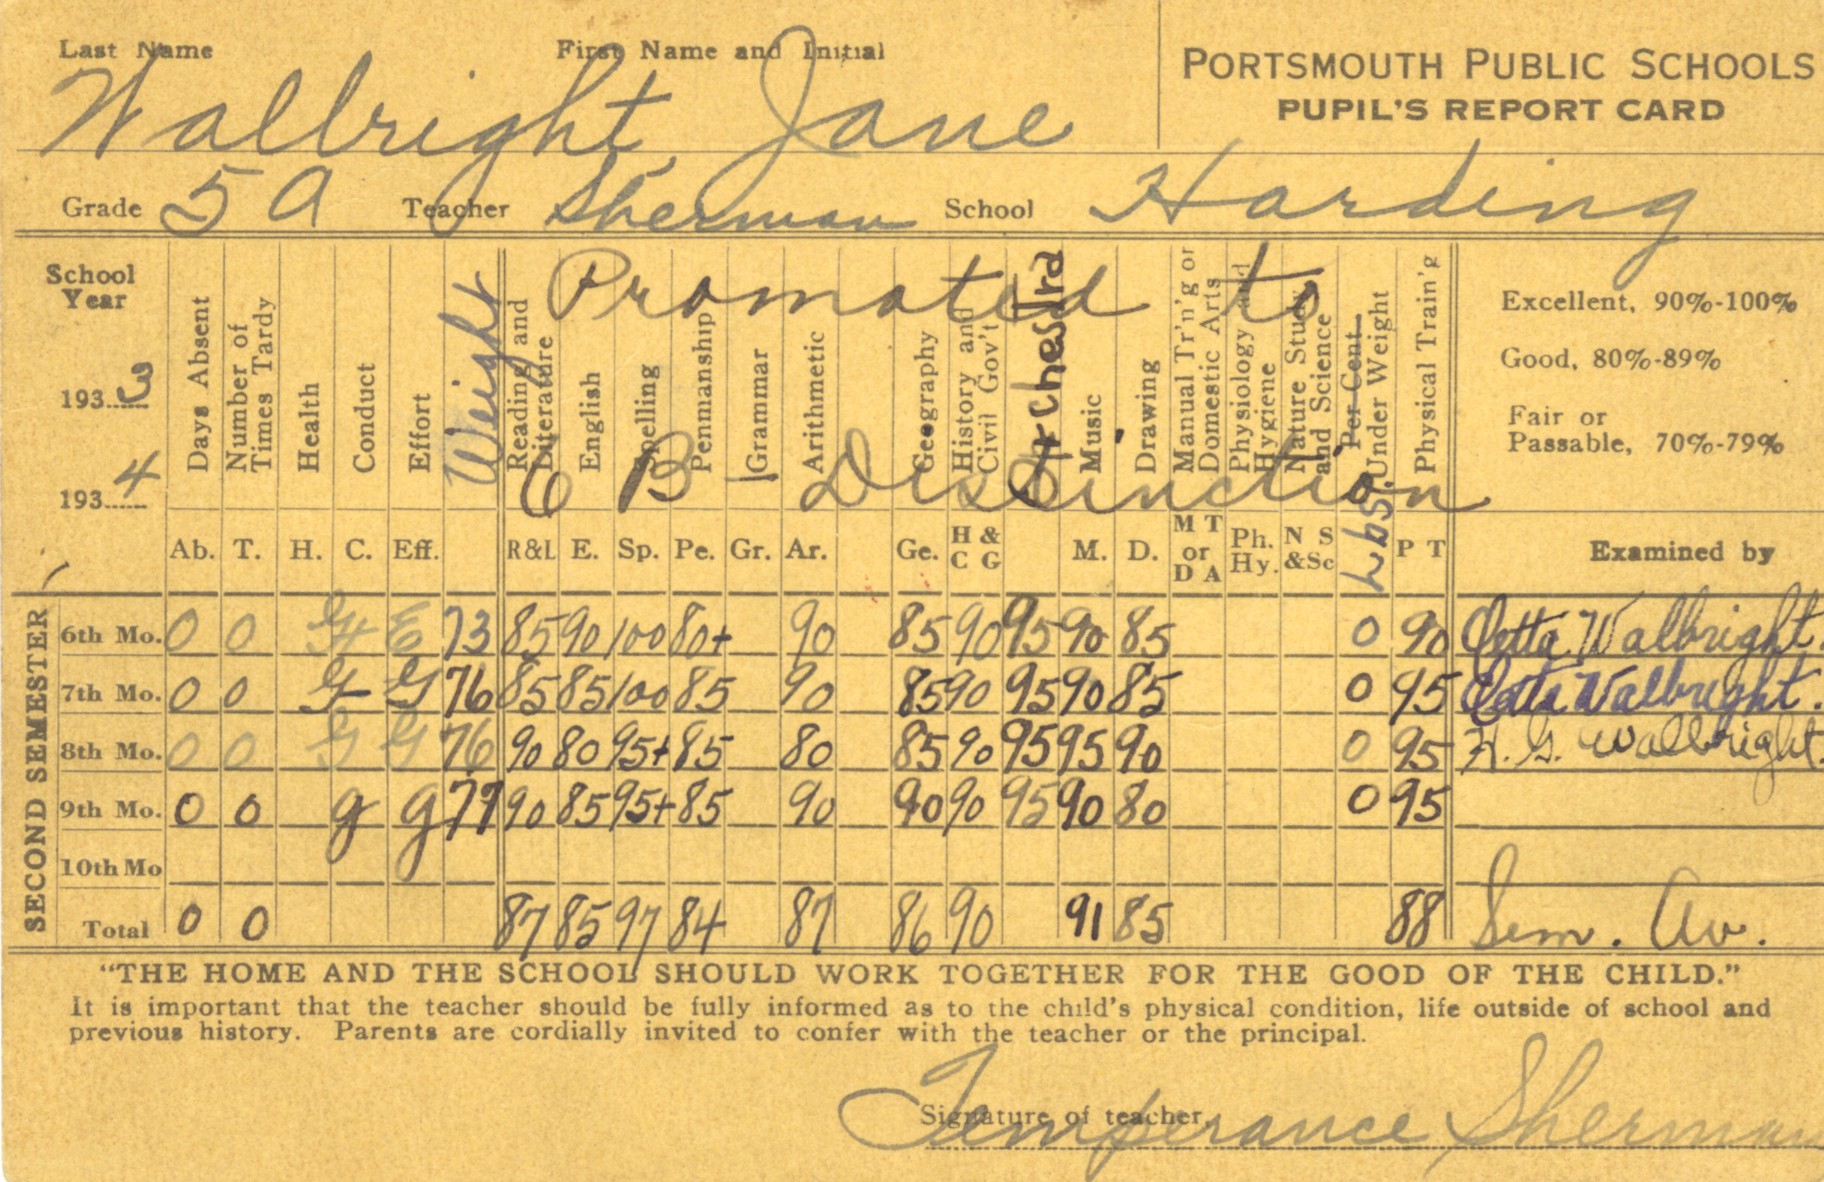 Last Name First Name and Initial
Walbright, Jane
PORTSMOUTH PUBLIC SCHOOLS
PUPIL'S REPORT CARD
Grade 5A Teacher Sherman School Harding
School Year
1933
1934
Days Absent
Number of Times Tardy
Health
Conduct
Effort
Weight
Reading and Literature
English
Spelling
Penmanship
Grammar
Arithmetic
Geography
History and Civil Gov't
Orchestra
Music
Drawing
Manual Tr'n'g or Domestic Arts
Physiology and Hygiene
Nature Study and Science
Per Cent Under Weight
Lbs.
Physical Train'g
Promoted to
6B - Distinction
Excellent, 90%-100%
Good, 80%-89%
Fair or
Passable, 70%-79%
Ab. T. H. C. Eff. R&L E. Sp. Pe. Gr. Ar. Ge. H & C G M. D. M T or D A Ph. Hy. N S &Sc P T Examined by
SECOND SEMESTER
6th Mo. 0 0 G+ E 73 85 90 100 80+ 90 85 90 95 90 85 0 90 Oetta Walbright.
7th Mo. 0 0 G G 76 85 85 100 85 90 85 90 95 90 85 0 95 Oetta Walbright.
8th Mo. 0 0 G G 76 90 80 95+ 85 80 85 90 95 95 90 0 95 H. G. Walbright.
9th Mo. 0 0 g g 77 90 85 95+ 85 90 90 90 95 90 80 0 95
10th Mo
Total 0 0 87 85 97 84 87 86 90 91 85 88 Sem. Av.
"THE HOME AND THE SCHOOL SHOULD WORK TOGETHER FOR THE GOOD OF THE CHILD."
It is important that the teacher should be fully informed as to the child's physical condition, life outside of school and
previous history. Parents are cordially invited to confer with the teacher or the principal.
Signature of teacher, Temperance Sherman